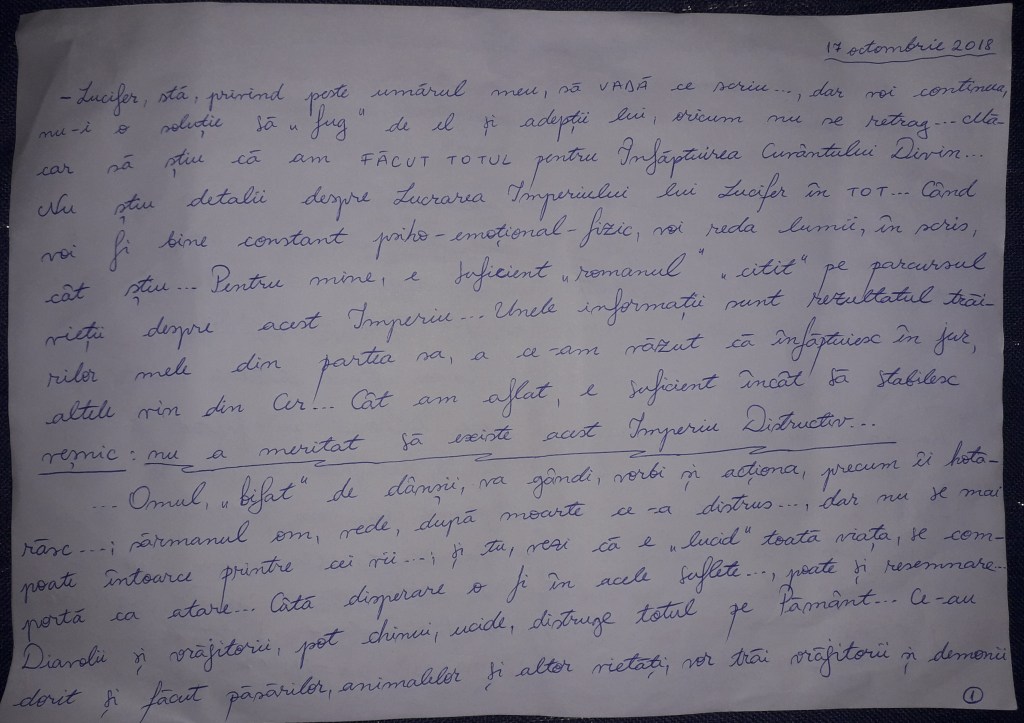 17 octombrie 2018
- Lucifer, stă, privind peste umărul meu, să VADĂ ce scriu..., dar voi continua,
nu-i o soluție să „fug" de el și adepții lui, oricum nu se retrag... Mă-
car să știu că am FĂCUT TOTUL pentru Înfăptuirea Cuvântului Divin...
Nu știu detalii despre Lucrarea Imperiului lui Lucifer în TOT... Când
voi fi bine constant psiho-emoțional-fizic, voi reda lumii, în scris,
cât știu... Pentru mine, e suficient „romanul" „citit" pe parcursul
vieții despre acest Imperiu... Unele informații sunt rezultatul trăi-
rilor mele din partea sa, a ce-am văzut că înfăptuiesc în jur,
altele vin din Cer... Cât am aflat, e suficient încât să stabilesc
veșnic: nu a meritat să existe acest Imperiu Distructiv...
... Omul, „bifat" de dânșii, va gândi, vorbi și acționa, precum îi hotă-
răsc...; sărmanul om, vede, după moarte ce-a distrus..., dar nu se mai
poate întoarce printre cei vii...; și tu, vezi că e „lucid" toată viața, se com-
portă ca atare... Câtă disperare o fi în acele suflete..., poate și resemnare...
Diavolii și vrăjitorii, pot chinui, ucide, distruge totul pe Pământ... Ce-au
dorit și făcut păsărilor, animalelor și altor vietăți, vor trăi vrăjitorii și demonii
1